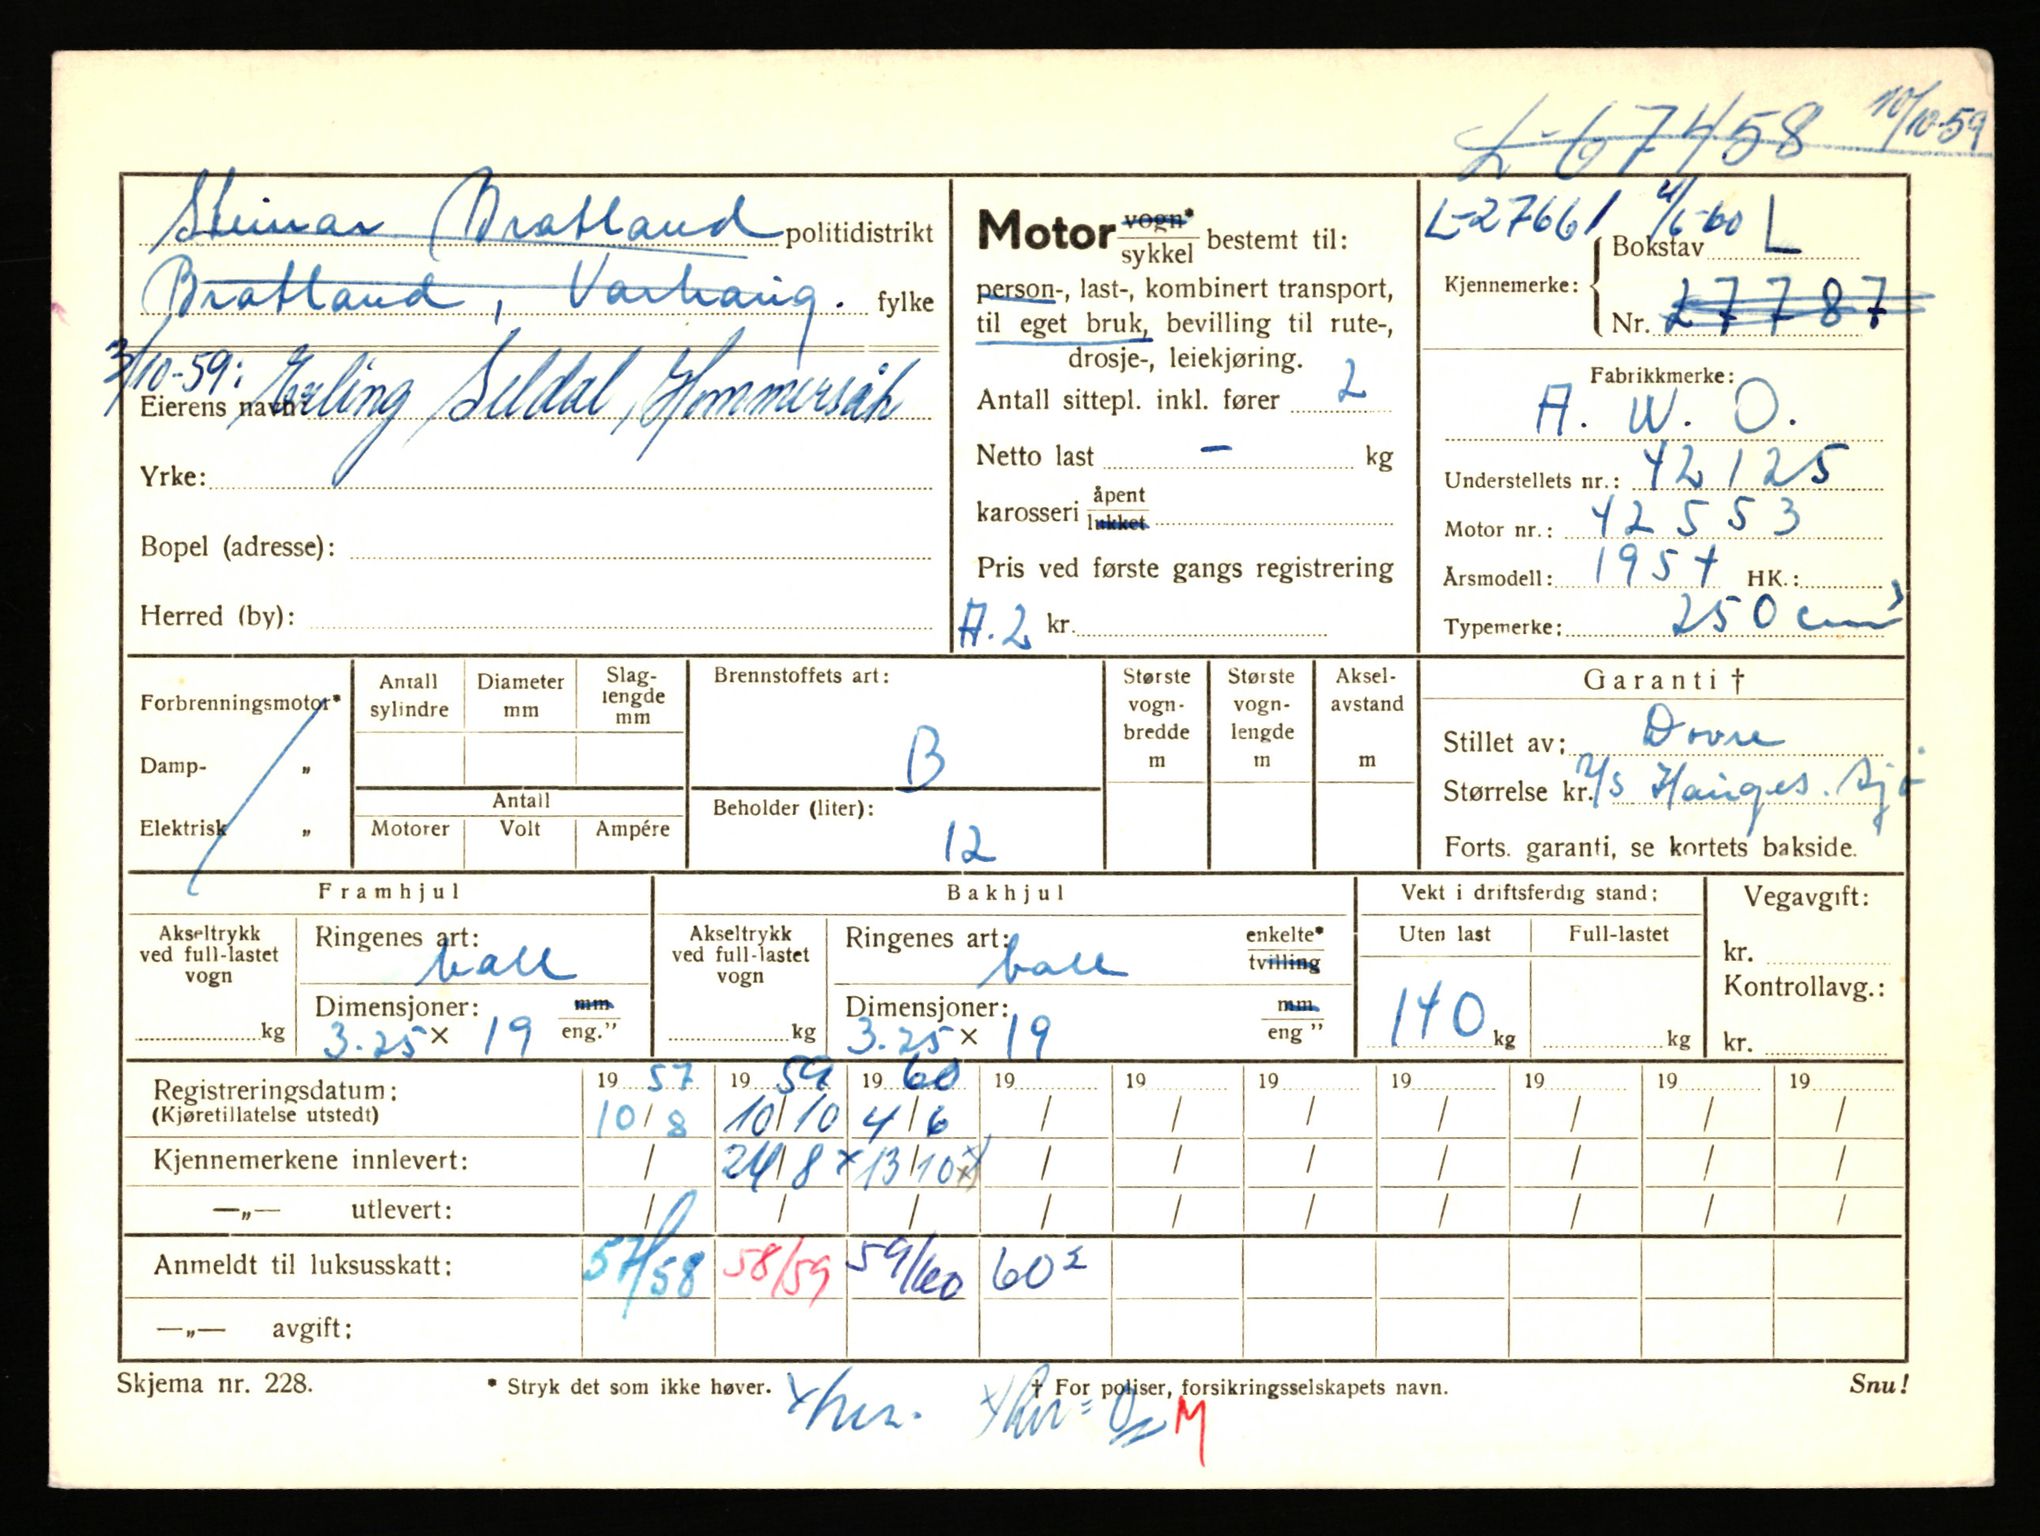 L-67458 10/10-59
Steinar Bratland politidistrikt
Bratland, Varhaug. fylke
3/10-59: Erling Seldal, Hommersåk
Eierens navn:
Yrke:
Bopel (adresse):
Herred (by):
Motor vogn* / sykkel bestemt til:
person-, last-, kombinert transport,
til eget bruk, bevilling til rute-,
drosje-, leiekjøring.
Antall sittepl. inkl. fører 2
Netto last – kg
karosseri åpent / lukket
Pris ved første gangs registrering
A.2 kr.
L-27661 4/6-60
Kjennemerke: Bokstav L
Nr. 27787
Fabrikkmerke:
A. W. O.
Understellets nr.: 42125
Motor nr.: 42553
Årsmodell: 1954 HK.:
Typemerke: 250 cm³
Forbrenningsmotor*
Damp- „
Elektrisk „
Antall sylindre
Diameter mm
Slaglengde mm
Antall
Motorer Volt Ampére
Brennstoffets art:
B
Beholder (liter):
12
Største vognbredde m
Største vognlengde m
Akselavstand m
Garanti †
Stillet av: Dovre
Størrelse kr. Hauges.
Forts. garanti, se kortets bakside.
Framhjul
Akseltrykk ved full-lastet vogn
kg
Ringenes art: ball
Dimensjoner: mm
3.25 x 19 eng.”
Bakhjul
Akseltrykk ved full-lastet vogn
kg
Ringenes art: ball enkelte* / tvilling
Dimensjoner: mm
3.25 x 19 eng ”
Vekt i driftsferdig stand:
Uten last Full-lastet
140 kg kg
Vegavgift:
kr.
Kontrollavg.:
kr.
Registreringsdatum: 19 57 19 59 19 60 19 19 19 19 19 19 19
(Kjøretillatelse utstedt) 10/8 10/10 4/6 / / / / / / /
Kjennemerkene innlevert: / 24/8 x 13/10 xx / / / / / / /
—„— utlevert: / / / / / / / / / /
Anmeldt til luksusskatt: 57/58 58/59 59/60 60²
—„— avgift:
Skjema nr. 228. * Stryk det som ikke høver. † For poliser, forsikringsselskapets navn. Snu!
M